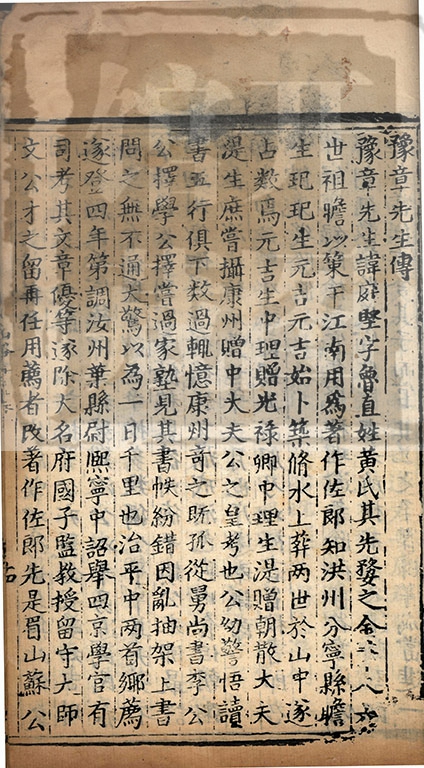 豫章先生傳
豫章先生諱庭堅字魯直姓黃氏其先婺之金華人六
世祖瞻以策干江南用爲著作佐郎知洪州分寧縣瞻
生玘玘生元吉元吉始卜築脩水上葬两世於山中遂
占數焉元吉生中理贈光祿卿中理生湜贈朝散大夫
湜生庶嘗攝康州贈中大夫公之皇考也公幼警悟讀
書五行俱下数過輒憶康州奇之旣孤從舅尚書李公
公擇學公擇嘗過家塾見其書帙紛錯因亂抽架上書
問之無不通大驚以為一日千里也治平中两首鄉薦
遂登四年第調汝州葉縣尉熈寧中詔舉四京學官有
司考其文章優等遂除大名府國子監教授留守太師
文公才之留再任用薦者改著作佐郎先是眉山蘇公